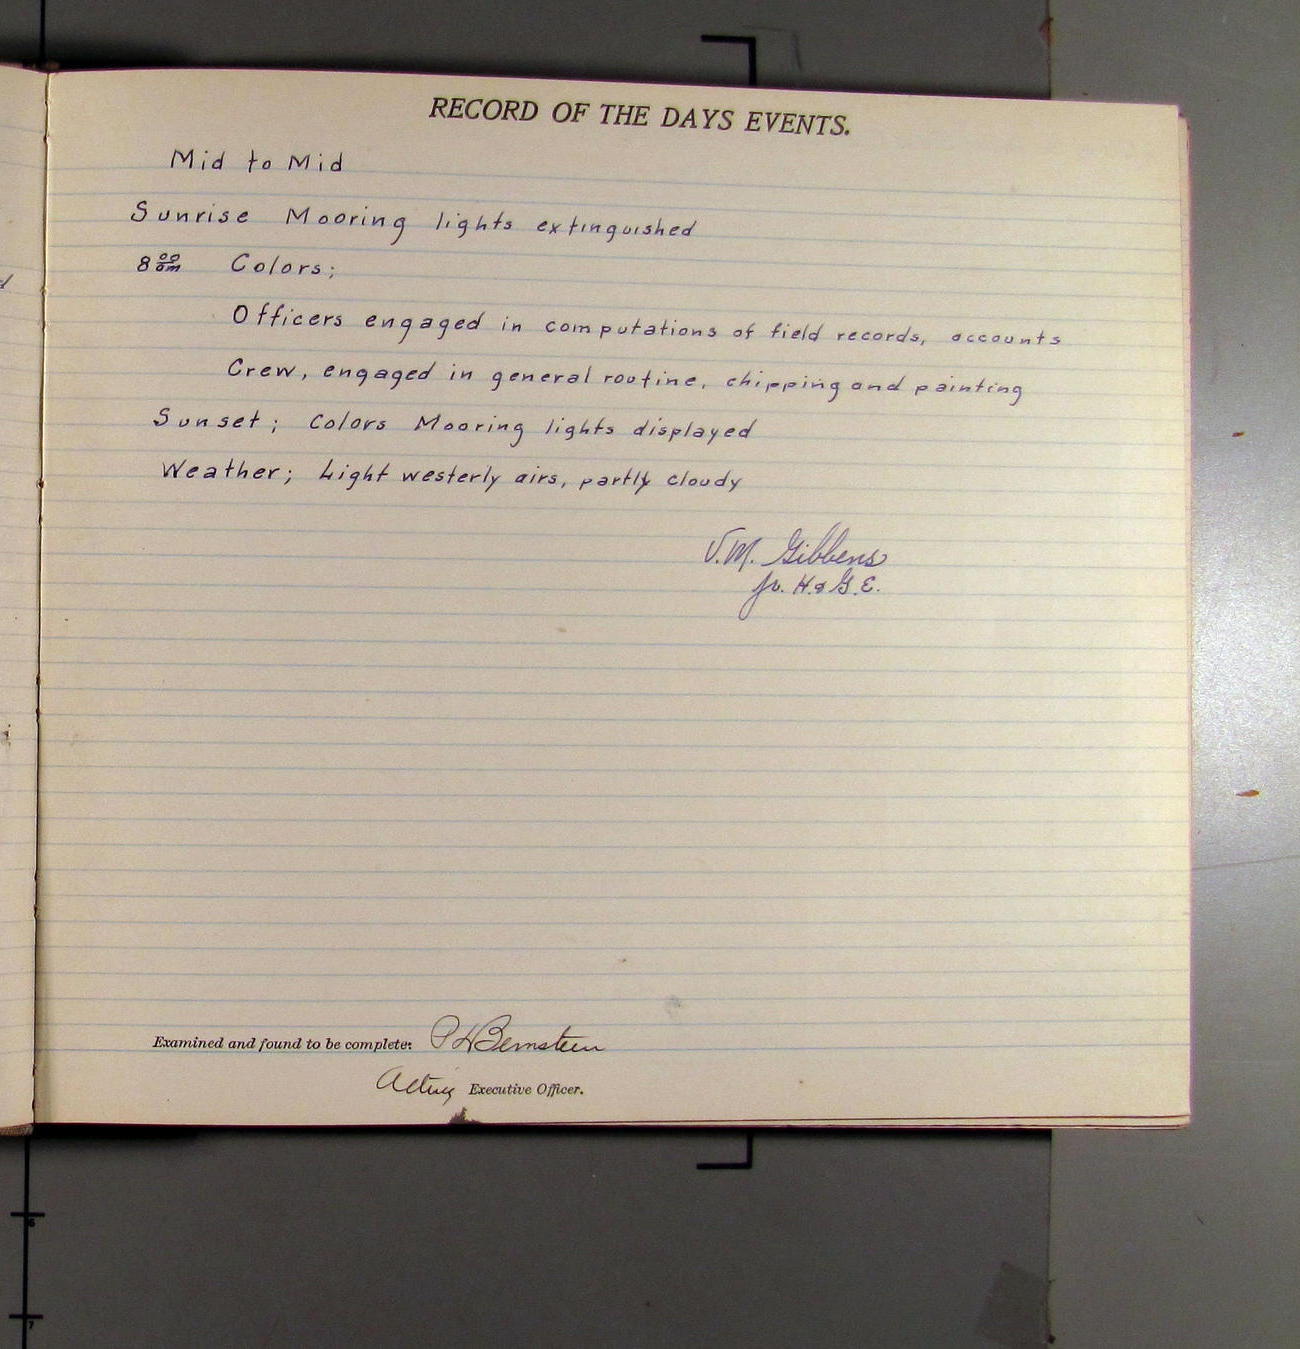 RECORD OF THE DAYS EVENTS.
Mid to Mid
Sunrise Mooring lights extinguished
8 00 am Colors;
Officers engaged in computations of field records, accounts
Crew, engaged in general routine, chipping and painting
Sunset; Colors Mooring lights displayed
Weather; Light westerly airs, partly cloudy
V.M. Gibbens
Jr. H. & G. E.
Examined and found to be complete: P L Bernstein
Acting Executive Officer.
6
7